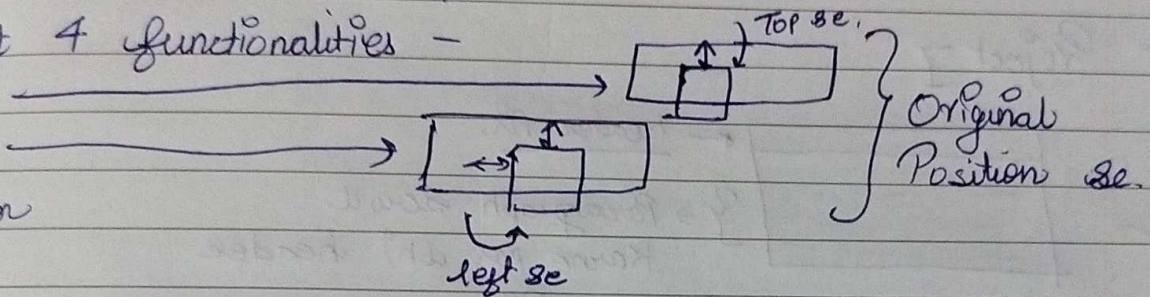 4 functionalities -
Top se.
Original
Position se.
left se